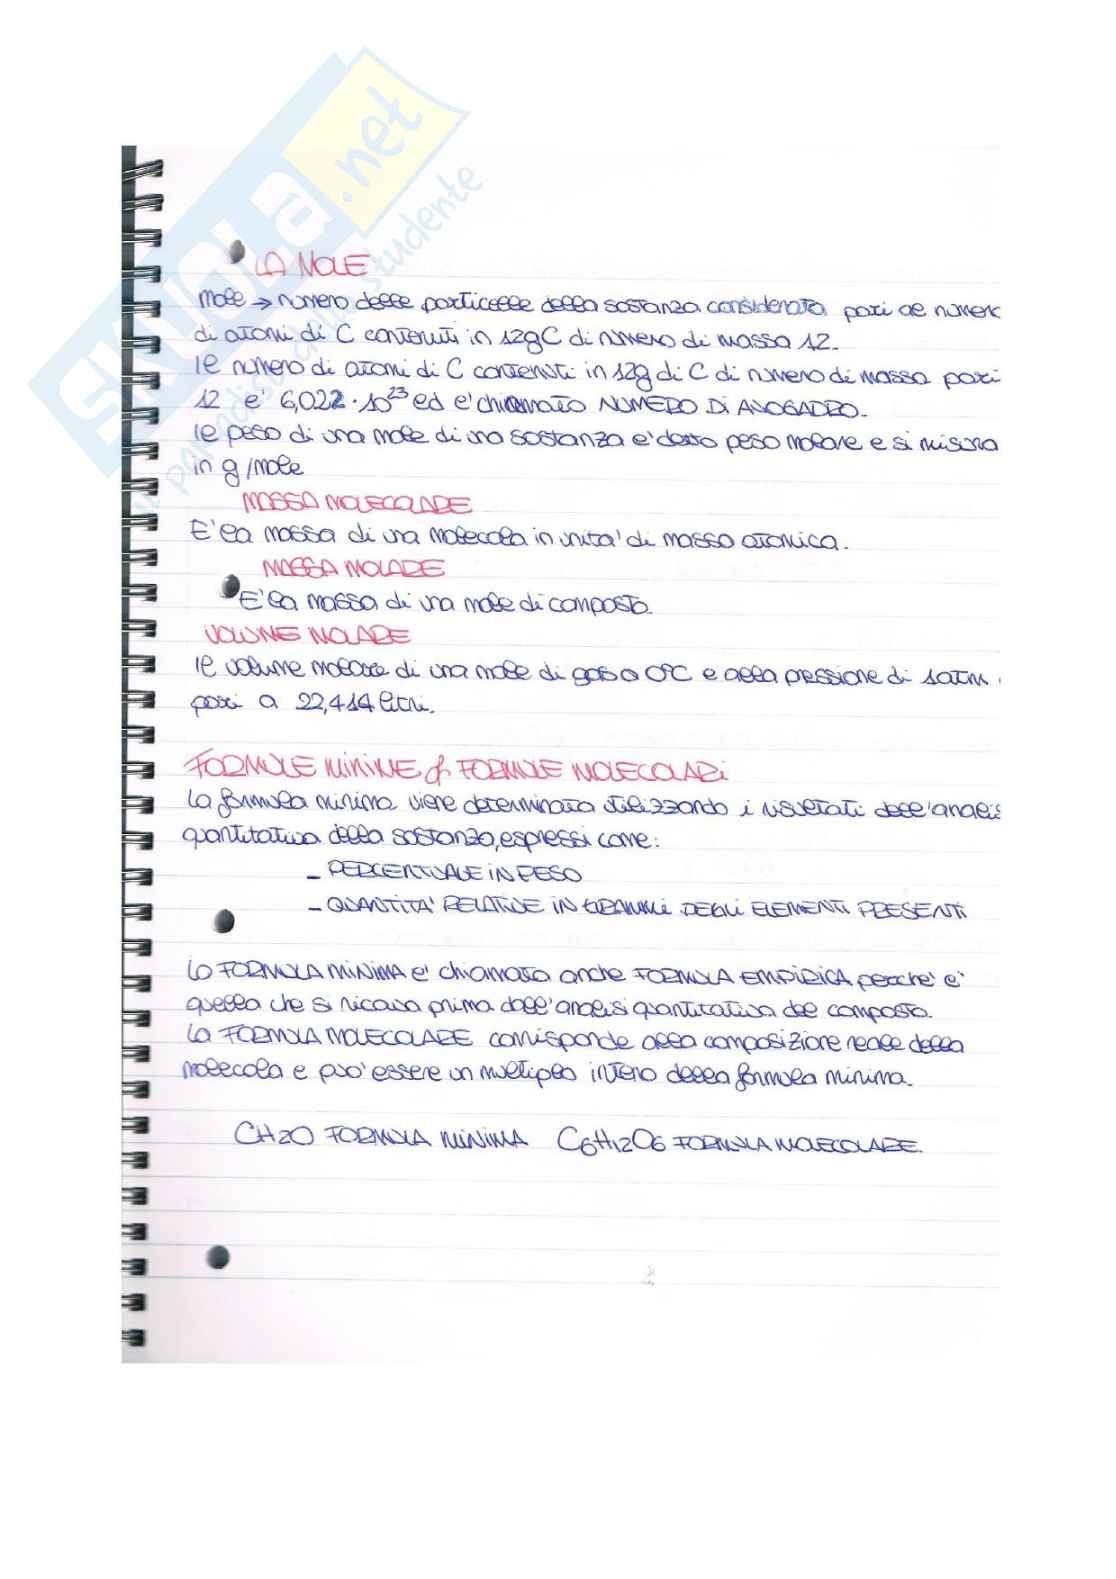 SKUOLA.net
il paradiso dello studente
LA MOLE
Mole → numero delle particelle della sostanza considerata pari al numero
di atomi di C contenuti in 12g C di numero di massa 12.
Il numero di atomi di C contenuti in 12g di C di numero di massa pari
12 e' 6,022 · 10²³ ed e' chiamato NUMERO DI AVOGADRO.
Il peso di una mole di una sostanza e' detto peso molare e si misura
in g/mole
MASSA MOLECOLARE
E' la massa di una molecola in unita' di massa atomica.
MASSA MOLARE
E' la massa di una mole di composto.
VOLUME MOLARE
Il volume molare di una mole di gas a 0°C e alla pressione di 1 atm
pari a 22,414 litri.
FORMULE MINIME & FORMULE MOLECOLARI
La formula minima viene determinata utilizzando i risultati dell'analis
quantitativa della sostanza, espressi come:
- PERCENTUALE IN PESO
- QUANTITA' RELATIVE IN GRAMMI DEGLI ELEMENTI PRESENTI
La FORMULA MINIMA e' chiamata anche FORMULA EMPIRICA perche' e'
quella che si ricava prima dall'analisi quantitativa del composto.
La FORMULA MOLECOLARE corrisponde alla composizione reale della
molecola e puo' essere un multiplo intero della formula minima.
CH2O FORMULA MINIMA C6H12O6 FORMULA MOLECOLARE.